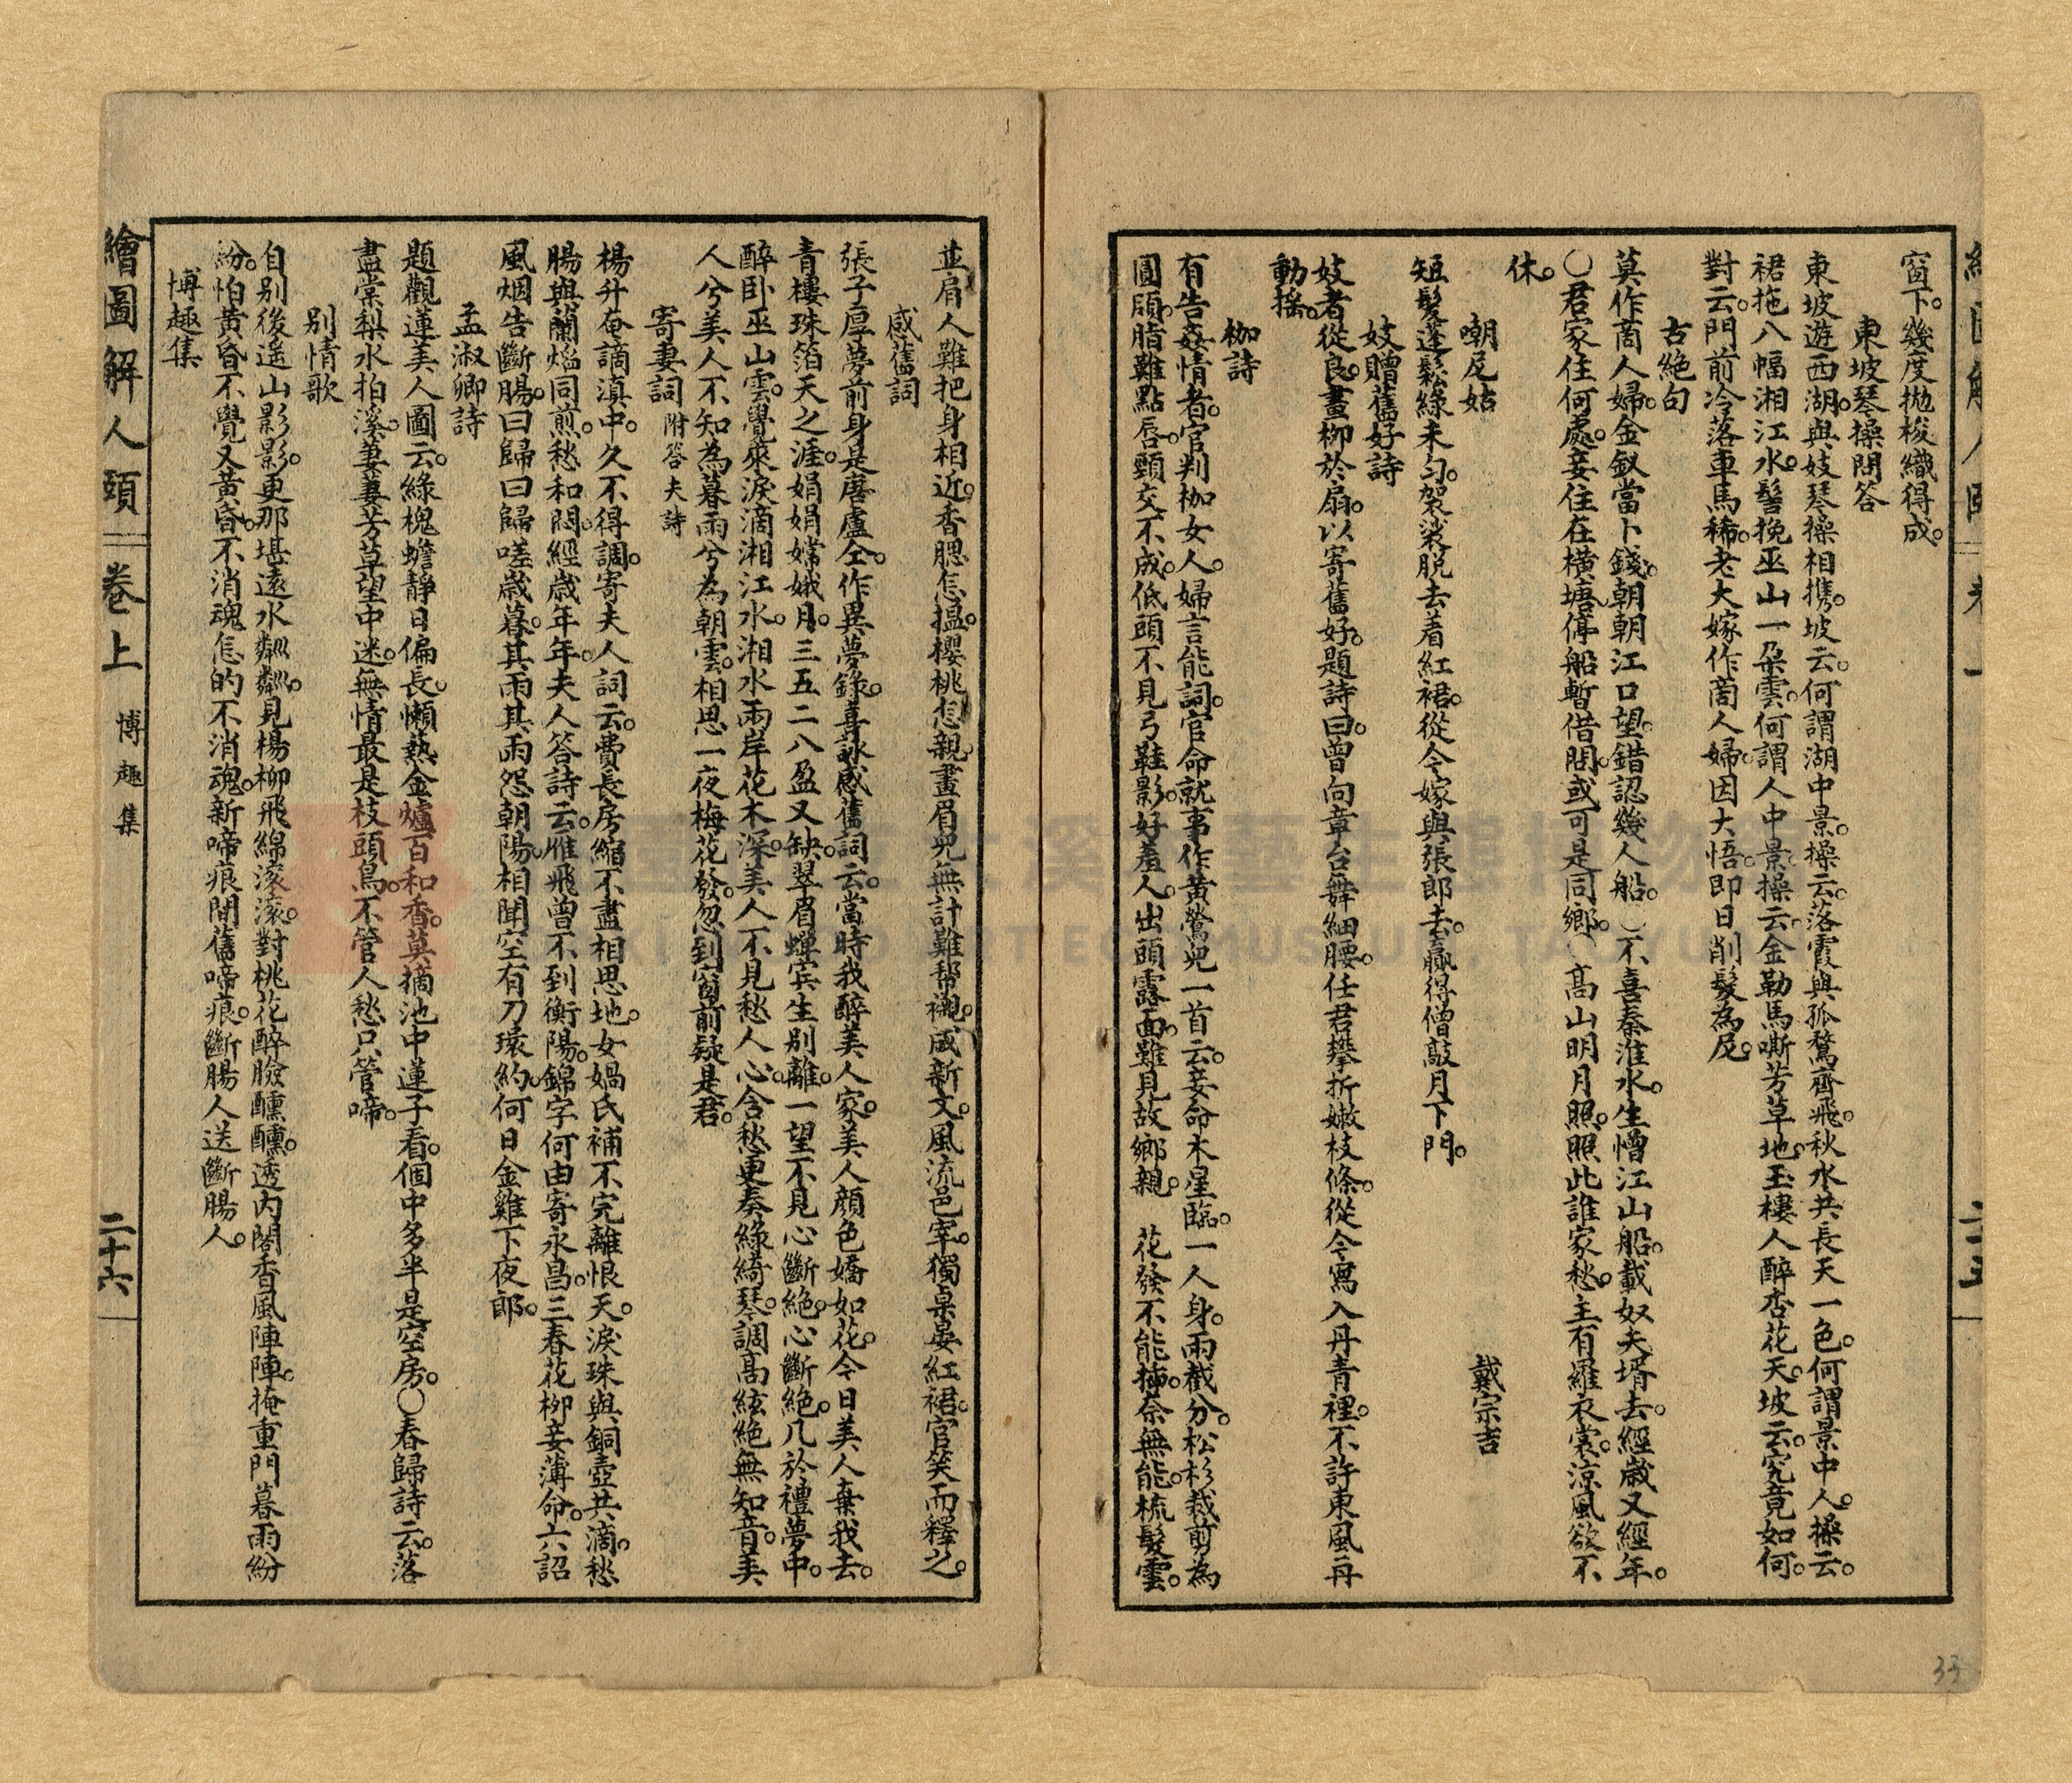 窗下。幾度拋梭織得成。
東坡琴操問答
東坡遊西湖。與妓琴操相携。坡云。何謂湖中景。操云。落霞與孤鶩齊飛。秋水共長天一色。何謂景中人。操云。
裙拖八幅湘江水。髻挽巫山一朵雲。何謂人中景。操云。金勒馬嘶芳草地。玉樓人醉杏花天。坡云。究竟如何。
對云。門前冷落車馬稀。老大嫁作啇人婦。因大悟。即日削髮為尼。
古絶句
莫作啇人婦。金釵當卜錢。朝朝江口望。錯認幾人船。〇不喜秦淮水。生憎江山船。載奴夫壻去。經歲又經年。
〇君家住何處。妾住在橫塘。停船暫借問。或可是同鄉。〇高山明月照。照此誰家愁。主有羅衣裳。涼風欲不
休。
嘲尼姑 戴宗吉
短髮蓬鬆綠未勻。袈裟脱去着紅裙。從今嫁與張郎去。贏得僧敲月下門。
妓贈舊好詩
妓者從良。畫柳於扇。以寄舊好。題詩曰。曾向章台舞細腰。任君攀折嫩枝條。從今寫入丹青裡。不許東風再
動搖。
枷詩
有告姦情者。官判枷女人。婦言能詞。官命就事作黃鶯兒一首云。妾命木星臨。一人身。兩截分。松杉裁剪為
圓頤。脂難點唇。頸交不成。低頭不見弓鞋影。好羞人。出頭露面。雖見故鄉親。 花發不能插。奈無能。梳髮雲。
並肩人難把身相近。香腮怎搵。櫻桃怎親。畫眉兒無計難帮襯。感新文。風流邑宰。獨桌晏紅裙。官笑而釋之。
感舊詞
張子厚夢前身是唐盧仝。作異夢錄。喜詠感舊詞云。當時我醉美人家。美人顔色嬌如花。今日美人棄我去。
青樓珠箔天之涯。娟娟嫦娥月。三五二八盈又缺。翠眉蟬宾生別離。一望不見心斷絶。心斷絶。几於禮夢中。
醉卧巫山雲。覺來淚滴湘江水。湘水兩岸花木深。美人不見愁人心。含愁更奏綠綺琴。調高絃絶無知音。美
人兮美人。不知為暮雨兮為朝雲。相思一夜梅花發。忽到窗前疑是君。
寄妻詞 附答夫詩
楊升菴謫滇中。久不得調。寄夫人詞云。費長房縮不盡相思地。女媧氏補不完離恨天。淚珠與銅壺共滴。愁
腸與蘭焰同煎。愁和悶。經歲年年。夫人答詩云。雁飛曾不到衡陽。錦字何由寄永昌。三春花柳妾薄命。六詔
風烟告斷腸。曰歸曰歸嗟歲暮。其雨其雨怨朝陽。相聞空有刀環約。何日金雞下夜郎。
孟淑卿詩
題觀蓮美人圖云。綠槐蟾靜日偏長。懶熱金爐百和香。莫摘池中蓮子看。個中多半是空房。〇春歸詩云。落
盡棠梨水拍溪。萋萋芳草望中迷。無情最是枝頭鳥。不管人愁只管啼。
別情歌
自別後遙山影影。更那堪遠水粼粼。見楊柳飛綿滾滾。對桃花醉臉醺醺。透內閣香風陣陣。掩重門暮雨紛
紛。怕黃昏不覺又黃昏。不消魂怎的不消魂。新啼痕間舊啼痕。斷腸人送斷腸人。
博趣集
繪圖解人頤 卷上 博趣集 二十六